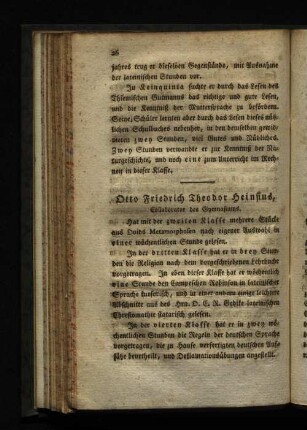 26
jahres trug er dieselben Gegenstände, mit Ausnahme
der lateinischen Stunden vor.
In Kleinquinta suchte er durch das Lesen des
Thiemischen Gutmanns das richtige und gute Lesen,
und die Kenntniß der Muttersprache zu befördern.
Seine Schüler lernten aber durch das Lesen dieses nüz-
lichen Schulbuches nebenher, in den demselben gewid-
meten zwey Stunden, viel Gutes und Nüzliches.
Zwey Stunden verwandte er zur Kenntniß der Na-
turgeschichte, und noch eine zum Unterricht im Rech-
nen in dieser Klasse.
Otto Friedrich Theodor Heinsius,
Collaborator des Gymnasiums.
Hat mit der zweiten Klasse mehrere Stücke
aus Ovids Metamorphosen nach eigener Auswahl in
einer wöchentlichen Stunde gelesen.
In der dritten Klasse hat er in drey Stun-
den die Religion nach dem vorgeschriebenen Lehrbuche
vorgetragen. In eben dieser Klasse hat er wöchentlich
eine Stunde den Campeschen Robinson in lateinischer
Sprache kursorisch, und in einer andern einige leichtere
Abschnitte aus des Hrn. O. C. R. Gedike lateinischen
Chrestomathie statarisch gelesen.
In der vierten Klasse hat er in zwey wö-
chentlichen Stunden die Regeln der deutschen Sprache
vorgetragen, die zu Hause verfertigten deutschen Auf-
sätze beurtheilt, und Deklamationsübungen angestellt.